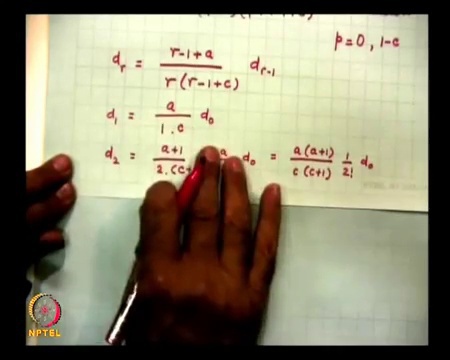 p=0, 1-c
d_r = (r-1+a) / (r(r-1+c)) d_{r-1}
d_1 = a / (1.c) d_0
d_2 = (a+1) / (2.(c+ a d_0 = a(a+1) / c(c+1) 1/2! d_0
NPTEL